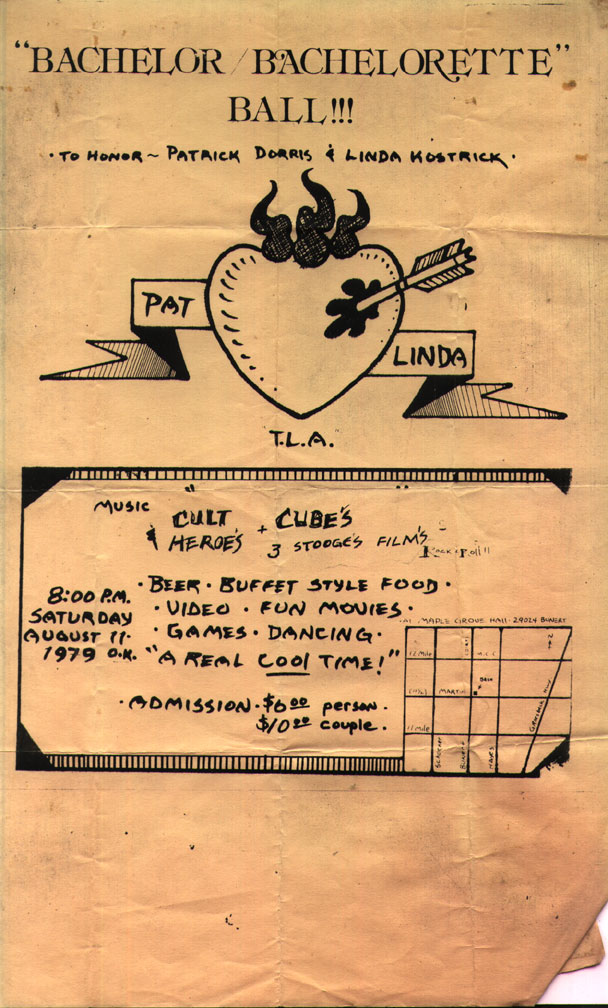 "BACHELOR / BACHELORETTE"
BALL!!!
· TO HONOR ~ PATRICK DORRIS & LINDA KOSTRICK ·
PAT
LINDA
T.L.A.
MUSIC
" CULT + CUBE'S "
& HEROE'S 3 STOOGES FILM'S
Rock & Roll!!
8:00 P.M.
SATURDAY
AUGUST 11.
1979 O.K.
· BEER · BUFFET STYLE FOOD ·
· VIDEO · FUN MOVIES ·
· GAMES · DANCING ·
"A REAL COOL TIME!"
· ADMISSION · $6.00 person ·
$10.00 couple ·
MAPLE GROVE HALL · 29024 BUNERT
12 Mile
MARTIN
11 Mile
BUNERT
HAYES
GRATIOT
N